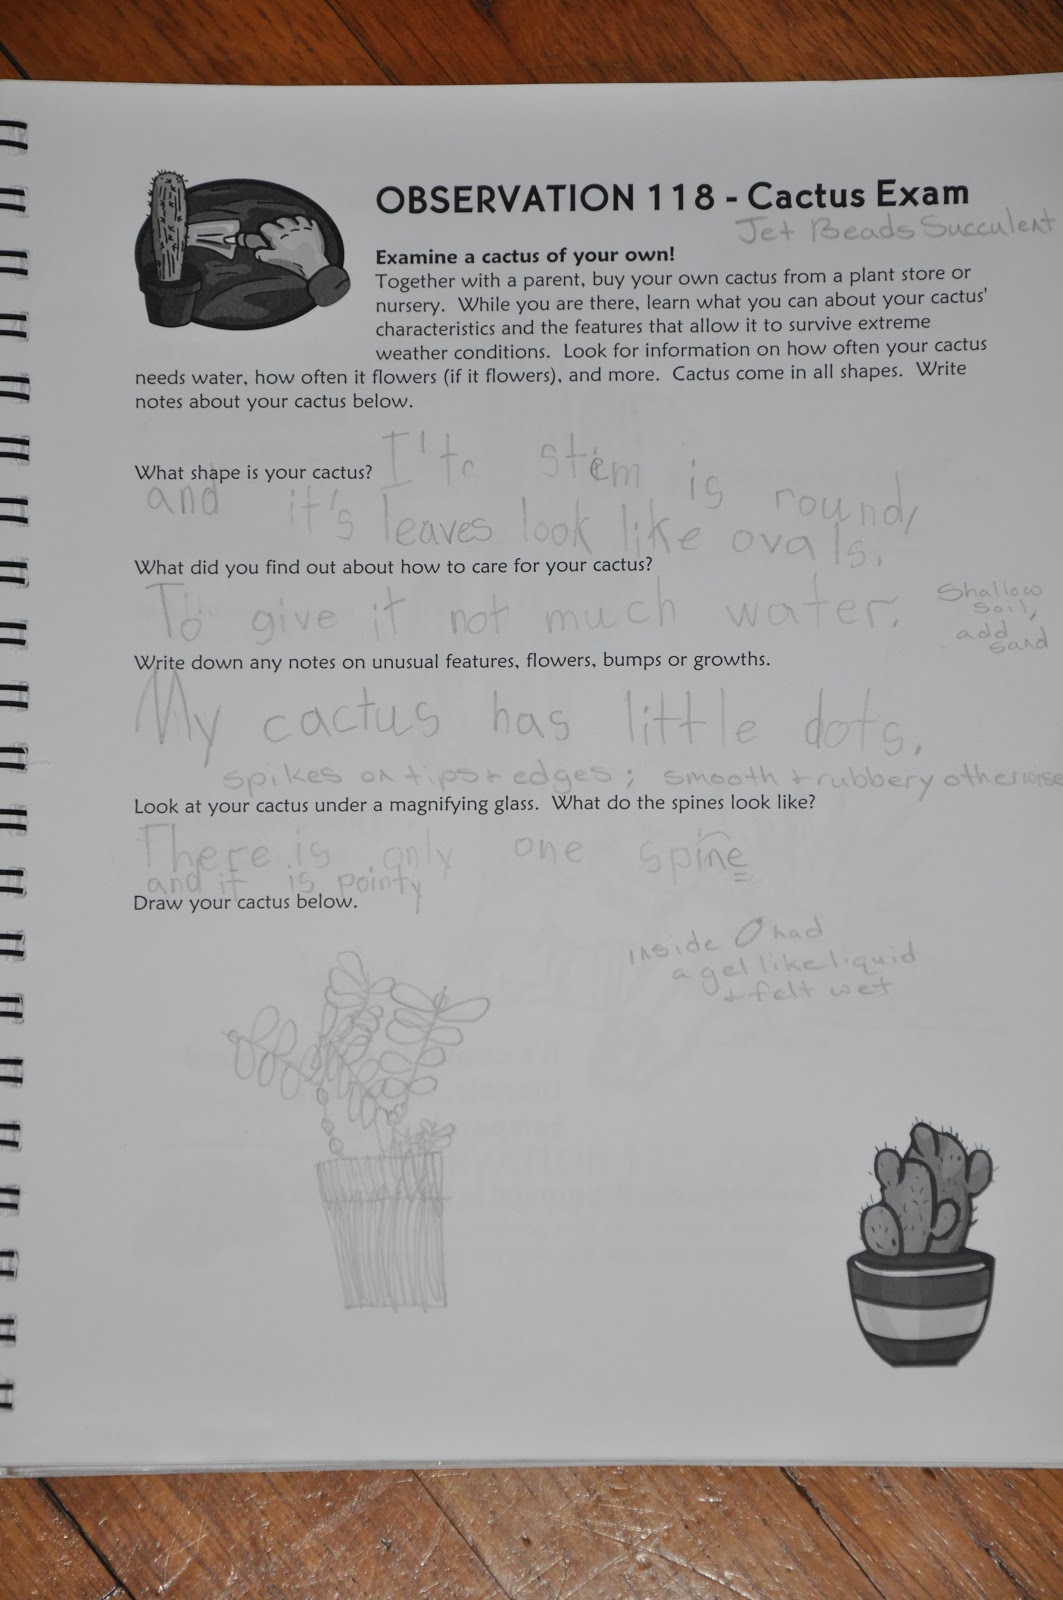 OBSERVATION 118 - Cactus Exam
Jet Beads Succulent
Examine a cactus of your own!
Together with a parent, buy your own cactus from a plant store or
nursery.  While you are there, learn what you can about your cactus'
characteristics and the features that allow it to survive extreme
weather conditions.  Look for information on how often your cactus
needs water, how often it flowers (if it flowers), and more.  Cactus come in all shapes.  Write
notes about your cactus below.
What shape is your cactus? stem is round,
and it's leaves look like ovals.
What did you find out about how to care for your cactus?
To give it not much water.
Shallow
soil,
add
sand
Write down any notes on unusual features, flowers, bumps or growths.
My cactus has little dots.
spikes on tips + edges; smooth + rubbery otherwise
Look at your cactus under a magnifying glass.  What do the spines look like?
There is only one spine
and it is pointy
Draw your cactus below.
inside had
a gel like liquid
+ felt wet